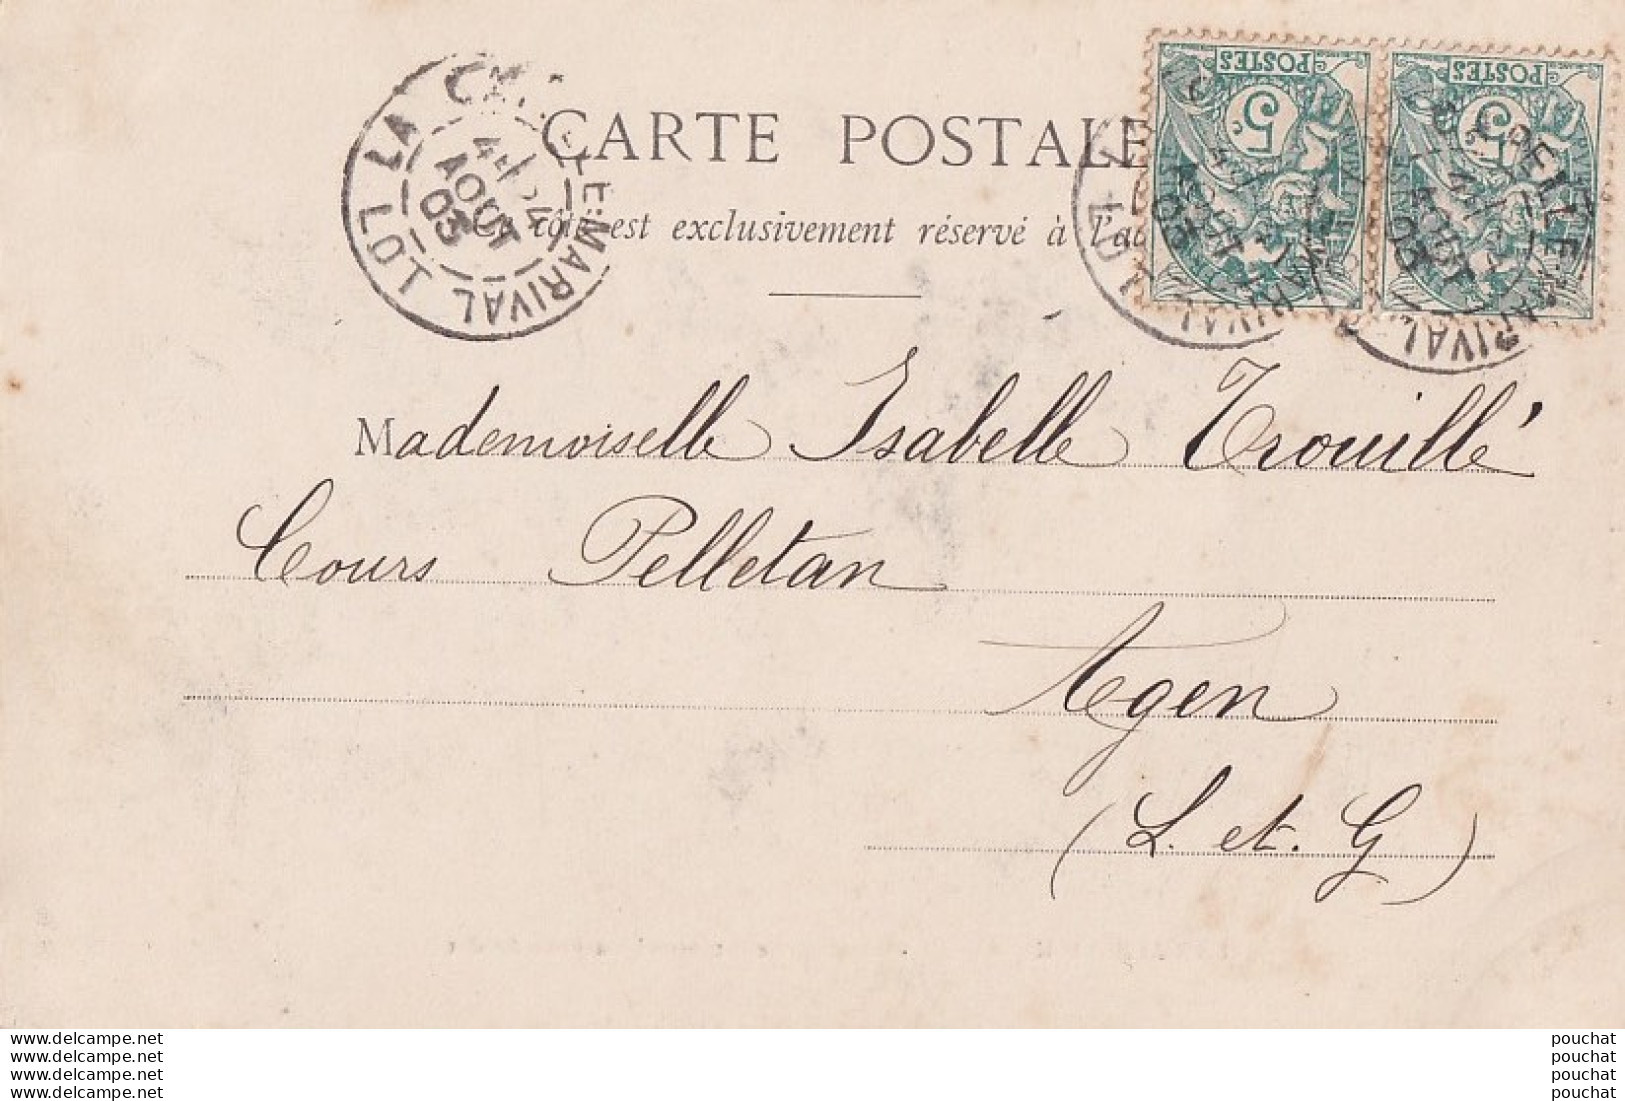 POSTES POSTES
5c 5c
CARTE POSTALE
LA CAPELLE-MARIVAL LOT
4 24
AOUT
05
Ce côté est exclusivement réservé à
Mademoiselle Isabelle Trouillé
Cours Pelletan
Agen
(L. et. G)
www.delcampe.net pouchat
www.delcampe.net pouchat
www.delcampe.net pouchat
www.delcampe.net pouchat